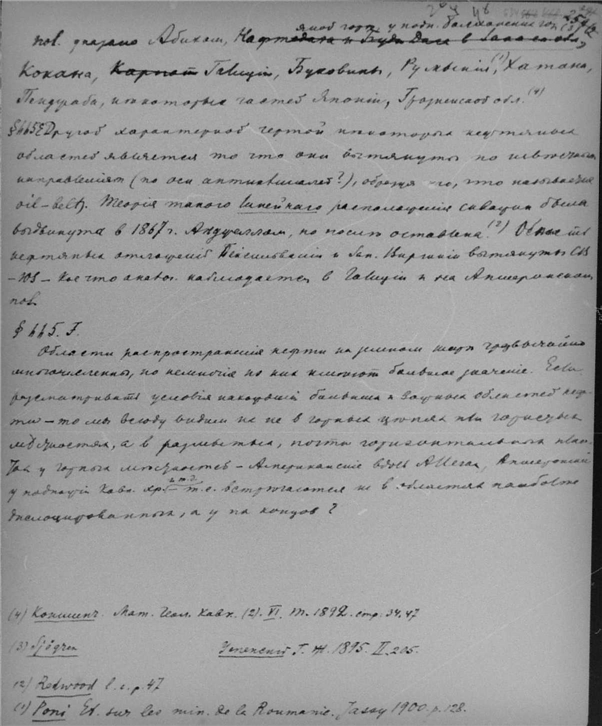 пов. указано Абихом,
Кокана, Карпат Галиціи, Буковины, Румыніи, (1) Хатана,
Пенджаба, некоторых частей Японіи, Грозненской обл. (4)
§ 665E Другой характерной чертой некоторых нефтяных
областей является то что они вытянуты по
направленіям (по оси антиклиналей?), образуя то, что называется
oil-belt. Теорія такого линейного расположенія скважин была
выдвинута в 1867 г. но после оставлена. (2)
нефтяных отложеній Пенсильваніи и Зап. Виргиніи вытянуты СВ
-ЮЗ- Кое что аналог. наблюдается в Галиціи и на Апшеронском
пов.
§ 665.F.
Области распространенія нефти на земном шаре чрезвычайно
многочисленны, но немногія из них имеют большое значеніе. Если
разсматривать условія нахожденія больших и мощных областей неф-
ти - то мы всюду видим их не в горных цепях или гористых
местностях, а в размытых, почти горизонтальных
Так у горных местностей - Американскіе вдоль Аллеган, Апшеронскій
у подножій Кавк. хр. и т.д. т.е. встречаются не в областях наиболее
дислоцированных, а у их концов?
(4) Коншин. Мат. Геол. Кавк. (2). VI. Т. 1892. стр. 34. 47
(3) Sjögren Успенскій Г. Ж. 1895. II. 205.
(2) Redwood l. c. p. 47
(1) Poni Et. sur les min. de la Roumanie. Jassy 1900. p. 128.